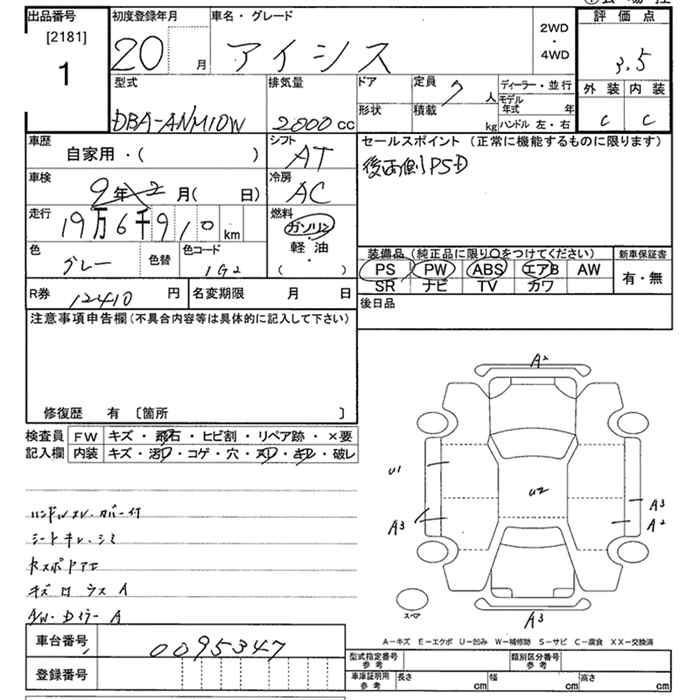 出品番号
[2181]
1
初度登録年月
20 月
車名・グレード
アイシス
2WD
・
4WD
評価点
3.5
外装 内装
C C
型式
DBA-ANM10W
排気量
2000 cc
ドア
形状
定員 7 人
積載 kg
ディーラー・並行
モデル年式 年
ハンドル 左・右
車歴
自家用・( )
シフト
AT
車検
9年2月( 日)
冷房
AC
走行
19万6千910 km
燃料
ガソリン
軽油
・
( )
色
グレー
色替
色コード
1G2
R券 12410 円
名変期限 月 日
セールスポイント (正常に機能するものに限ります)
後両側PSD
装備品 (純正品に限り○をつけてください)
PS PW ABS エアB AW
SR ナビ TV カワ
新車保証書
有・無
後日品
注意事項申告欄 (不具合内容等は具体的に記入して下さい)
修復歴 有 〔箇所 〕
検査員
記入欄
FW キズ・飛石・ヒビ割・リペア跡・×要
内装 キズ・汚れ・コゲ・穴・スレ・キレ・破レ
ハンドルスレ・カバー付
シートキレ・シミ
キズ
A2
U1
U2
A3
A3
A2
A3
スペア
A-キズ E-エクボ U-凹み W-補修跡 S-サビ C-腐食 XX-交換済
車台番号 0095347
登録番号
型式指定番号
参考
類別区分番号
参考
車庫証明用
参考
長さ cm 幅 cm 高さ cm